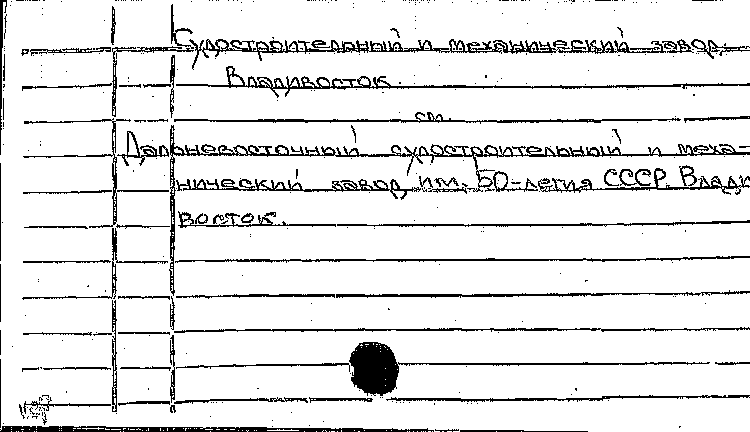 Судостроительный и механический завод.
Владивосток.
см.
Дальневосточный судостроительный и меха-
нический завод им. 50-летия СССР. Влади
восток.